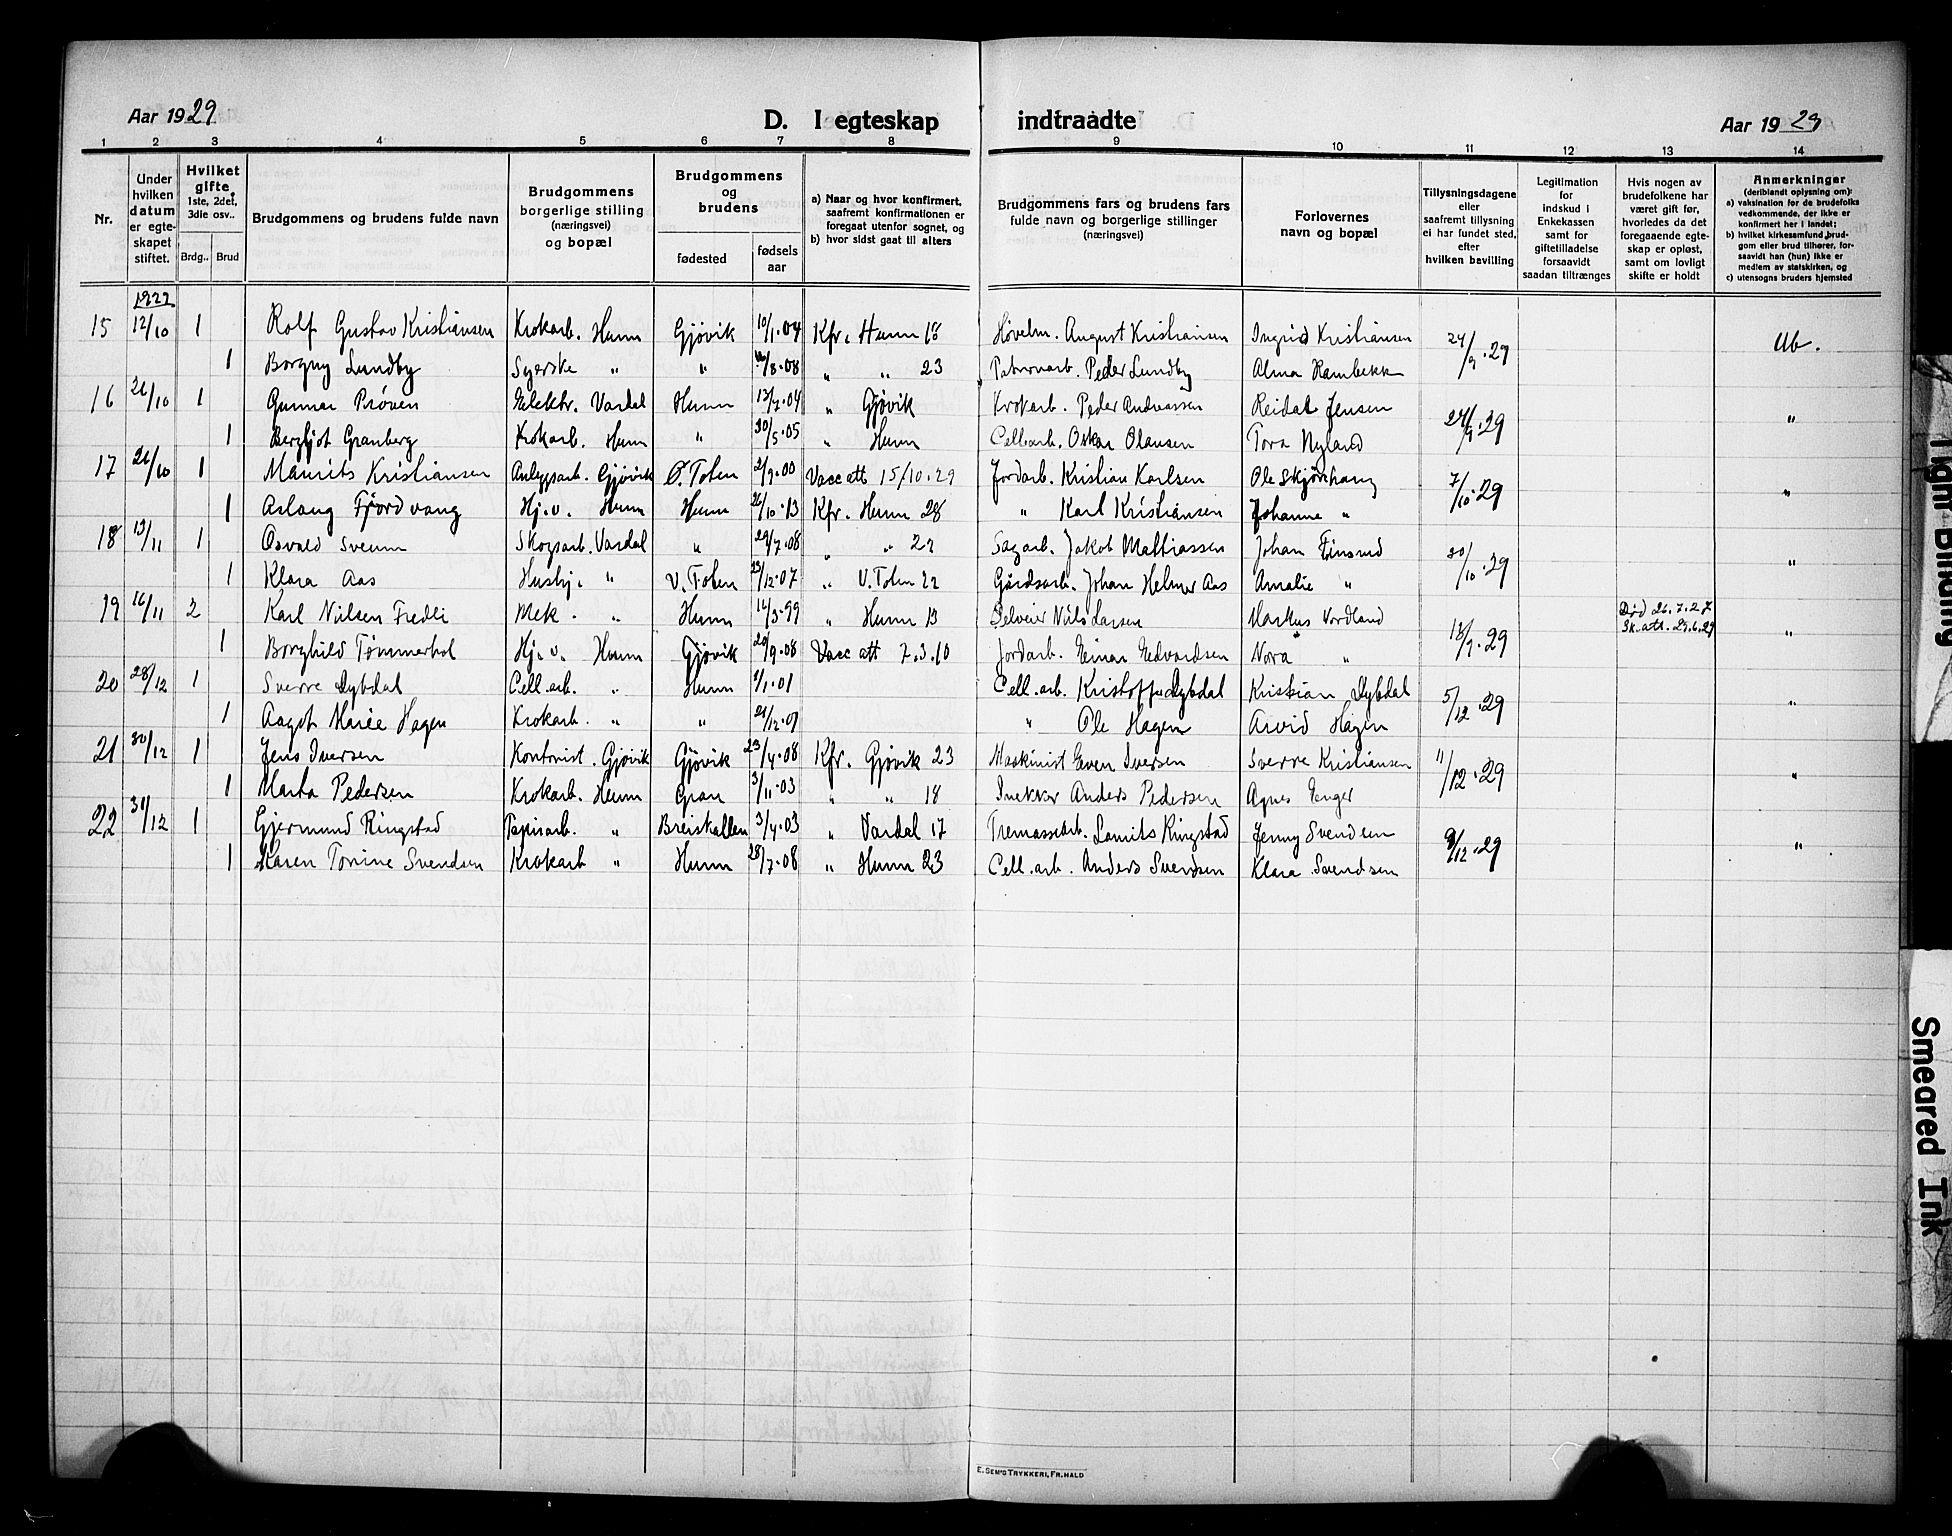 Aar 1929
D. I egteskap indtraadte
Aar 1929
1 2 3 4 5 6 7 8 9 10 11 12 13 14
Nr.
Under hvilken datum er egteskapet stiftet.
Hvilket gifte, 1ste, 2det, 3die osv..
Brdg.. Brud
Brudgommens og brudens fulde navn
Brudgommens borgerlige stilling (næringsvei) og bopæl
Brudgommens og brudens
fødested
fødsels aar
a) Naar og hvor konfirmert, saafremt konfirmationen er foregaat utenfor sognet, og
b) hvor sidst gaat til alters
Brudgommens fars og brudens fars fulde navn og borgerlige stillinger (næringsvei)
Forlovernes navn og bopæl
Tillysningsdagene eller saafremt tillysning ei har fundet sted, efter hvilken bevilling
Legitimation for indskud i Enkekassen samt for giftetilladelse forsaavidt saadan tiltrænges
Hvis nogen av brudefolkene har været gift før, hvorledes da det foregaaende egteskap er opløst, samt om lovligt skifte er holdt
Anmerkninger (deriblandt oplysning om):
a) vaksination for de brudefolks vedkommende, der ikke er konfirmert her i landet;
b) hvilket kirkesamfund brudgom eller brud tilhører, forsaavidt han (hun) ikke er medlem av statskirken, og
c) utensogns bruders hjemsted
15 12/10 1 Rolf Gustav Kristiansen Krokarb. Hunn Gjøvik 10/1.04 Kfr. Hunn 18 Høvelm. August Kristiansen Ingrid Kristiansen 24/9.29 Ub.
1 Borgny Lundby Syerske " " /8.08 " " 23 Peder Lundby Alma Rambekk
16 26/10 1 Gunnar Prøven Elektr. Vardal Hunn 13/7.04 " Gjøvik Krokarb. Peder Andreassen Reidar Jensen 24/9.29 "
1 Bergljot Granberg Krokarb. Hunn " 30/5.05 " Hunn Cellearb. Oskar Olausen Tora Nyland
17 26/10 1 Maurits Kristiansen Anleggsarb. Gjøvik Ø. Toten 2/9.00 Vacc att 15/10.29 Jordarb. Kristian Karlsen Ole Skjørshang 7/10.29 "
1 Aslaug Fjordvang Hj.v. Hunn Hunn 26/10.13 Kfr. Hunn 28 " Karl Kristiansen Johanne "
18 13/11 1 Osvald Sveum Skogsarb. Vardal " 29/7.08 " " 22 Sagarb. Jakob Mathiassen Johan Einsrud 20/10.29 "
1 Klara Aas Husbj. " V. Toten 23/12.07 " V. Toten 22 Gårdsarb. Johan Helmer Aas Amalie "
19 16/11 2 Karl Nilsen Fredli Mek. " Hunn 16/3.99 " Hunn 13 Selveier Nils Larsen Markus Nordland 18/9.29 Død 26.7.27 Sk. att. 29.6.29 "
1 Borghild Tømmerhol Hj.v. Hunn Gjøvik 20/9.08 Vacc att 7.3.10 Jordarb. Einar Edvardsen Nora "
20 28/12 1 Sverre Dybdal Cell.arb. " Hunn 9/1.01 Cell.arb. Kristoffer Dybdal Kristian Dybdal 5/12.29 "
1 Aagot Marie Hagen Krokarb. " " 29/12.07 " Ole Hagen Arvid Hagen
21 30/12 1 Jens Iversen Kontorist. Gjøvik Gjøvik 23/4.08 Kfr. Gjøvik 23 Maskinist Even Iversen Sverre Kristiansen 11/12.29 "
1 Marta Pedersen Krokarb. Hunn Gran 3/11.03 " " 18 Snekker Anders Pedersen Agnes Enger
22 31/12 1 Gjermund Ringstad Papirarb. " Breiskallen 3/4.03 " Vardal 17 Tremassearb. Lamits Ringstad Jenny Svendsen 9/12.29 "
1 Karen Tomine Svendsen Krokarb " Hunn 28/7.08 " Hunn 23 Cell.arb. Anders Svendsen Klara Svendsen
E. SEM'S TRYKKERI, FR.HALD
Tight Binding
Smeared Ink